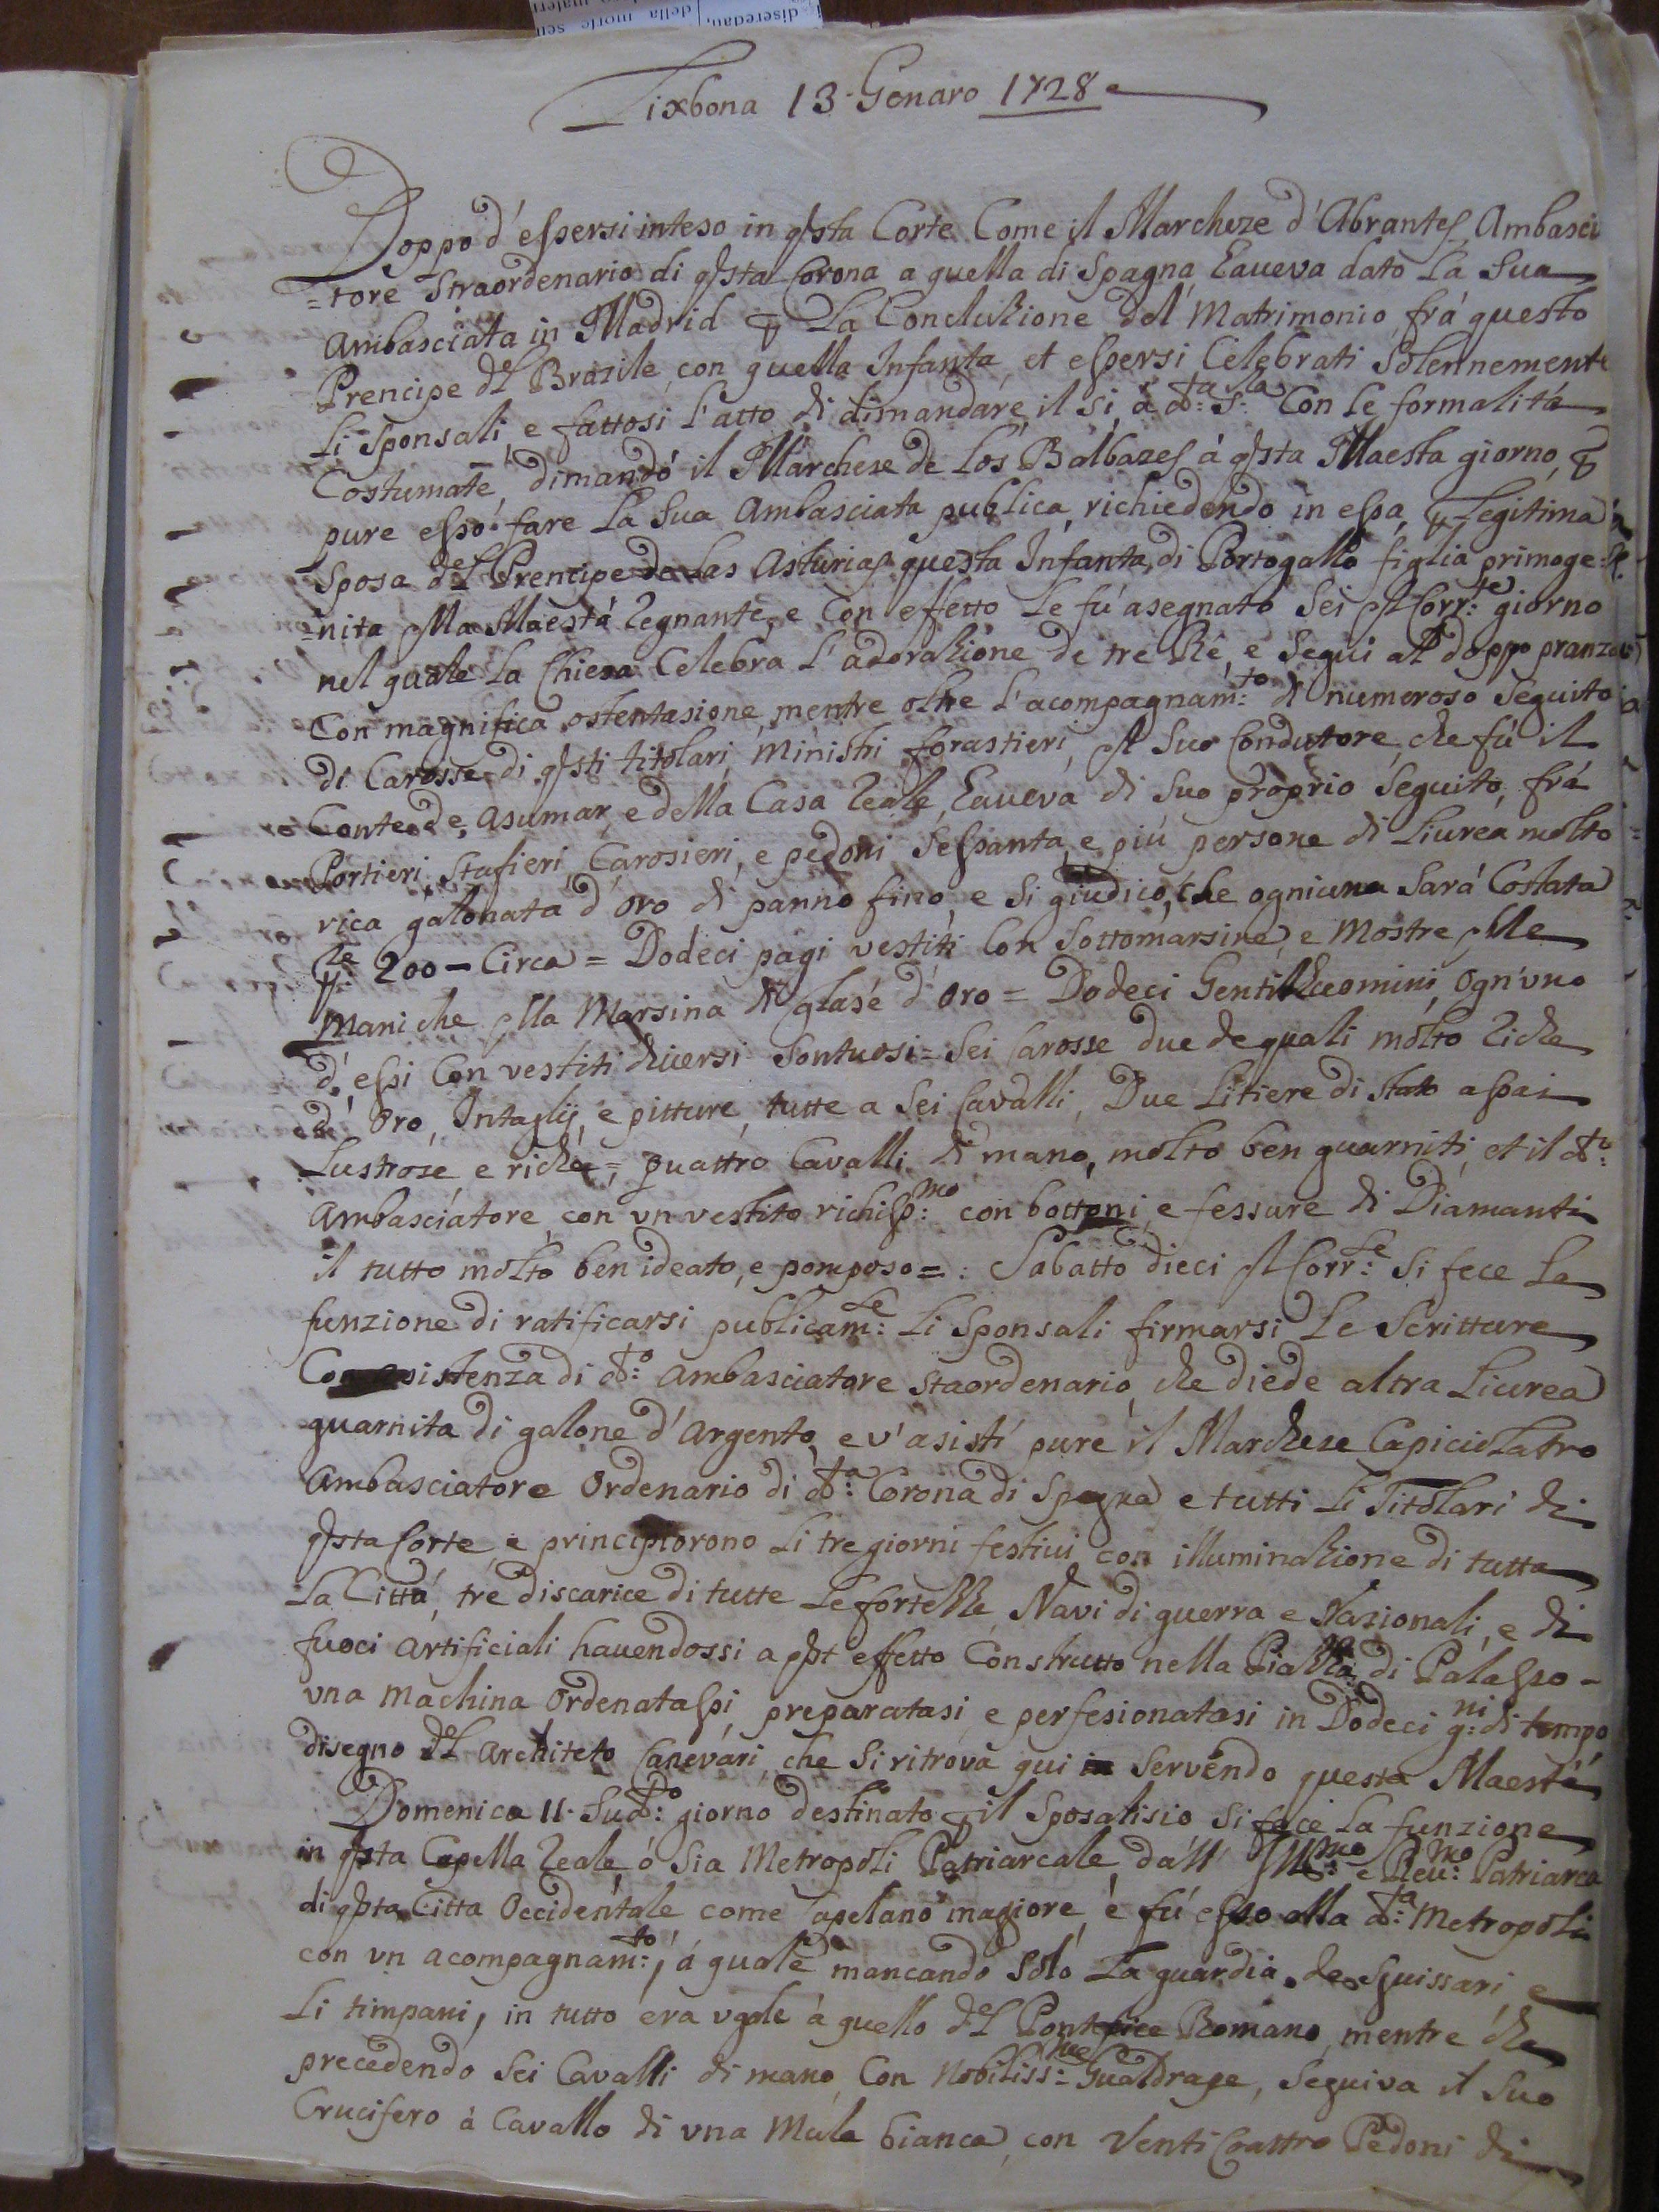 Lixbona 13 Genaro 1728
Doppo d'essersi inteso in qsta Corte Come il Marcheze d'Abrantes Ambasci
=tore Straordenario di qsta Corona a quella di Spagna, haueva dato La Sua
Ambasciata in Madrid p La Concluzione del Matrimonio frá questo
Prencipe del Brazile con quella Infanta, et essersi Celebrati Solennemente
Li Sponsali, e fattosi l'atto di dimandare il si, á d.ta S.ra Con le formalitá
Costumate, dimandó il Marchese de Los Balbazes á qsta Maesta giorno, p
pure esso fare La Sua Ambasciata publica, richiedendo in essa, p Legitima
Sposa del Prencipe de Las Asturias questa Infanta di Portogallo figlia primoge=
=nita della Maestá Regnante, e Con effetto Le fú asegnato Sei del Corr:te giorno
nel quale La Chiesa Celebra L'adorazione de tre Ré, e Segui al doppo pranzo
Con magnifica ostentasione, mentre oltre L'acompagnam:to di numeroso Seguito
di Carosse di qsti titolari, Ministri forastieri, del Suo Condutore, che fú il
Conte de Asumar, e della Casa Reale, haueva di Suo proprio Seguito, frá
Portieri, Stafieri, Carosieri, e pedoni Sessanta, e piú persone di Liurea molto
rica galonata d'oro di panno fino, e Si giudicó, che ogniuna Sará Costata
200 – Circa = Dodeci pagi vestiti Con Sottomarsine, e Mostre delle
Maniche della Marsina di glasé d'oro = Dodeci Gentilhuomini, Ogn'vno
d'essi Con vestiti diversi Sontuosi = Sei Carosse due de quali molto Riche
d'Oro, Intaglij, e pitture, tutte a Sei Cavalli, Due Litiere di Stato assai
Lustrose e riche = quattro Cavalli di mano, molto ben guarniti, et il d.to
Ambasciatore con vn vestito richiss:mo con bottoni, e fessure di Diamanti
il tutto molto ben ideato, e pomposo = : Sabatto dieci del Corr:te Si fece La
funzione di ratificarsi publicam:te Li Sponsali firmarsi Le Scritture
Con asistenza di d:to Ambasciatore Staordenario, che diede altra Liurea
guarnita di galone d'Argento, e v'asistí pure il Marchese Capiciolatro
Ambasciatore Ordenario di d:ta Corona di Spagna e tutti Li Titolari di
qsta Corte, e principiorono Li tre giorni festiui con illuminazione di tutta
La Cittá, tre discarice di tutte Le fortezze, Navi di guerra e Nazionali, e di
fuoci artificiali hauendossi a qst effetto Construtto nella Piazza di Palasso -
vna machina Ordenatassi, preparatasi e perfesionatasi in Dodeci g:ni di tempo
disegno del Architeto Canevari, che Si ritrova qui in Servendo questa Maestá
Domenica 11. Sud:to giorno destinato p il Sposalisio Si fece La funzione
in qsta Capella Reale, ó Sia Metropoli Patriarcale, dall' Ill:mo e Reu:mo Patriarca
di qsta Citta Occidentale come Capelano magiore, é fú esso alla d:ta Metropoli
con vn acompagnam:to, á quale mancando Solo La guardia de Suissari e
Li timpani, in tutto era vgale á quello del Pontefice Romano, mentre che
precedendo Sei Cavalli di mano, Con Nobiliss:me Gualdrape, Seguiva il Suo
Crucifero á Cavallo di vna Mula bianca, con Venti Cuattro Pedoni di